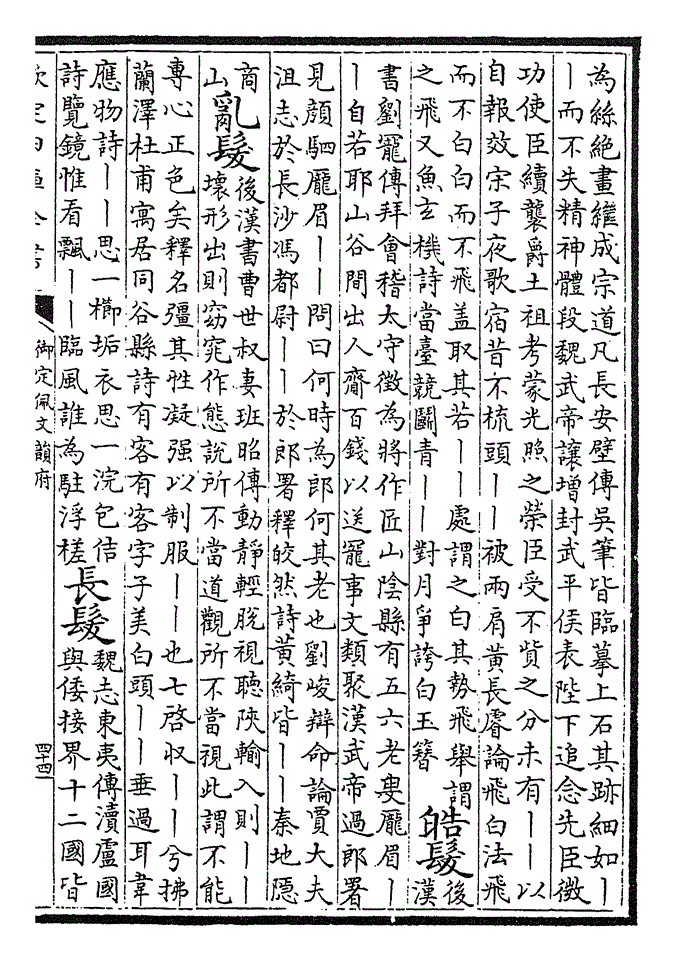 為絲絶畫繼成宗道凡長安壁傳吳筆皆臨摹上石其跡細如丨
丨而不失精神體段魏武帝讓增封武平侯表陛下追念先臣微
功使臣續襲爵土祖考蒙光照之榮臣受不貲之分未有丨丨以
自報效宋子夜歌宿昔不梳頭丨丨被兩肩黃長睿論飛白法飛
而不白白而不飛盖取其若丨丨處謂之白其勢飛舉謂
之飛又魚玄機詩當臺競鬭青丨丨對月爭誇白玉簪
皓髮
後
漢
書劉寵傳拜會稽太守徵為將作匠山陰縣有五六老叟龎眉丨
丨自若耶山谷間出人齎百錢以送寵事文類聚漢武帝過郎署
見顔駟龎眉丨丨問曰何時為郎何其老也劉峻辯命論賈大夫
沮志於長沙馮都尉丨丨於郎署釋皎然詩黃綺皆丨丨秦地隱
商
山
亂髮
後漢書曹世叔妻班昭傳動靜輕脫視聽陜輸入則丨丨
壞形出則窈窕作態說所不當道觀所不當視此謂不能
專心正色矣釋名彊其性凝强以制服丨丨也七啓收丨丨兮拂
蘭澤杜甫寓居同谷縣詩有客有客字子美白頭丨丨垂過耳韋
應物詩丨丨思一櫛垢衣思一浣包佶
詩覽鏡惟看飄丨丨臨風誰為駐浮槎
長髮
魏志東夷傳瀆盧國
與倭接界十二國皆
欽定四庫全書
御定佩文韻府
四十四